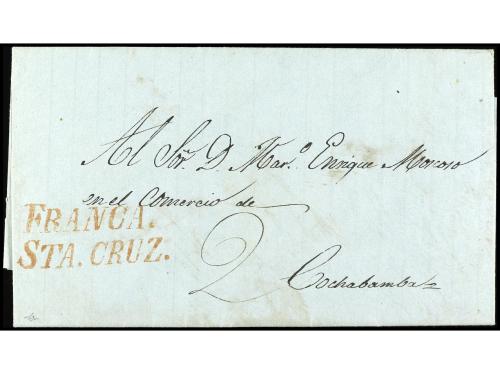 Al Sor. D. Mar.o Enrique Moroso
en el Comercio de
FRANCA.
STA. CRUZ.
2
Cochabamba